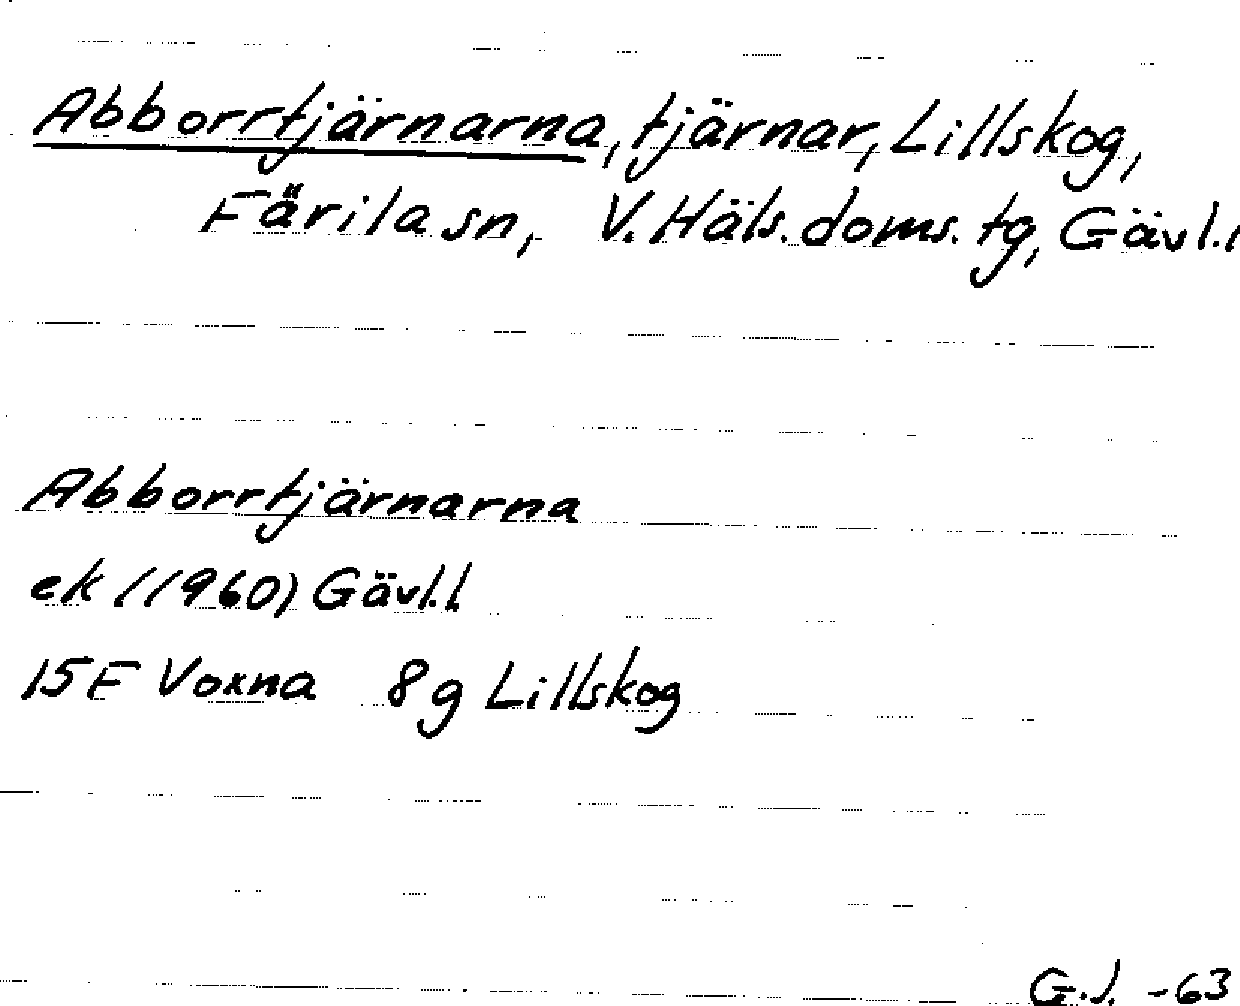 Abborrtjärnarna, tjärnar, Lillskog,
Färila sn, V. Häls. doms. tg, Gävl. l
Abborrtjärnarna
ek (1960) Gävl. l.
15F Voxna 8g Lillskog
G.J. -63